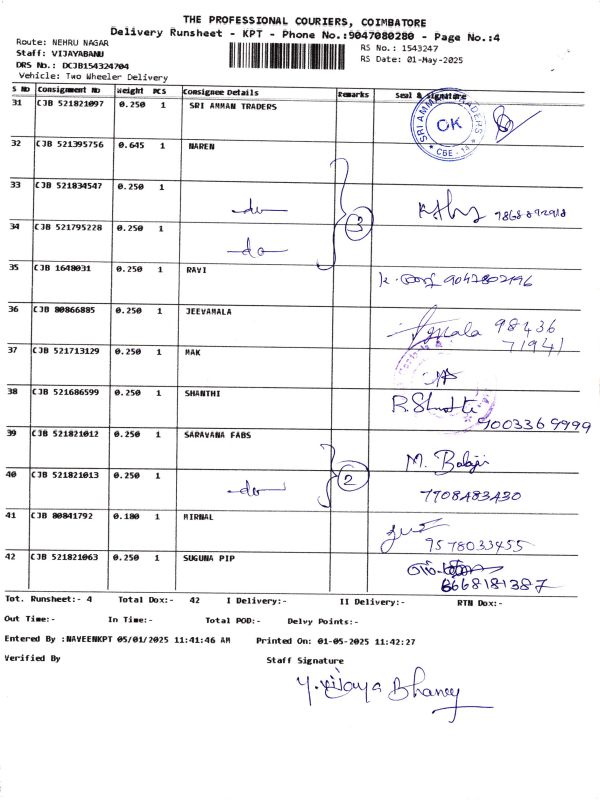 THE PROFESSIONAL COURIERS, COIMBATORE
Delivery Runsheet - KPT - Phone No.:9047080280 - Page No.:4
Route: NEHRU NAGAR
Staff: VIJAYABANU
DRS No.: DCJB154324704
Vehicle: Two Wheeler Delivery
RS No.: 1543247
RS Date: 01-May-2025
S No Consignment No Weight PCS Consignee Details Remarks Seal & Signature
31 CJB 521821097 0.250 1 SRI AMMAN TRADERS
SRI AMMAN TRADERS OK CBE - 14
32 CJB 521395756 0.645 1 NAREN
33 CJB 521834547 0.250 1 do
3
34 CJB 521795228 0.250 1 do
35 CJB 1648031 0.250 1 RAVI 9042802196
36 CJB 80866885 0.250 1 JEEVAMALA 98436
71941
37 CJB 521713129 0.250 1 MAK
38 CJB 521686599 0.250 1 SHANTHI
9003369999
39 CJB 521821012 0.250 1 SARAVANA FABS M. Balaji
2
40 CJB 521821013 0.250 1 do 7708483430
41 CJB 80841792 0.180 1 MIRNAL
9578033455
42 CJB 521821063 0.250 1 SUGUNA PIP
6668181387
Tot. Runsheet:- 4 Total Dox:- 42 I Delivery:- II Delivery:- RTN Dox:-
Out Time:- In Time:- Total POD:- Delvy Points:-
Entered By :NAVEENKPT 05/01/2025 11:41:46 AM Printed On: 01-05-2025 11:42:27
Verified By Staff Signature